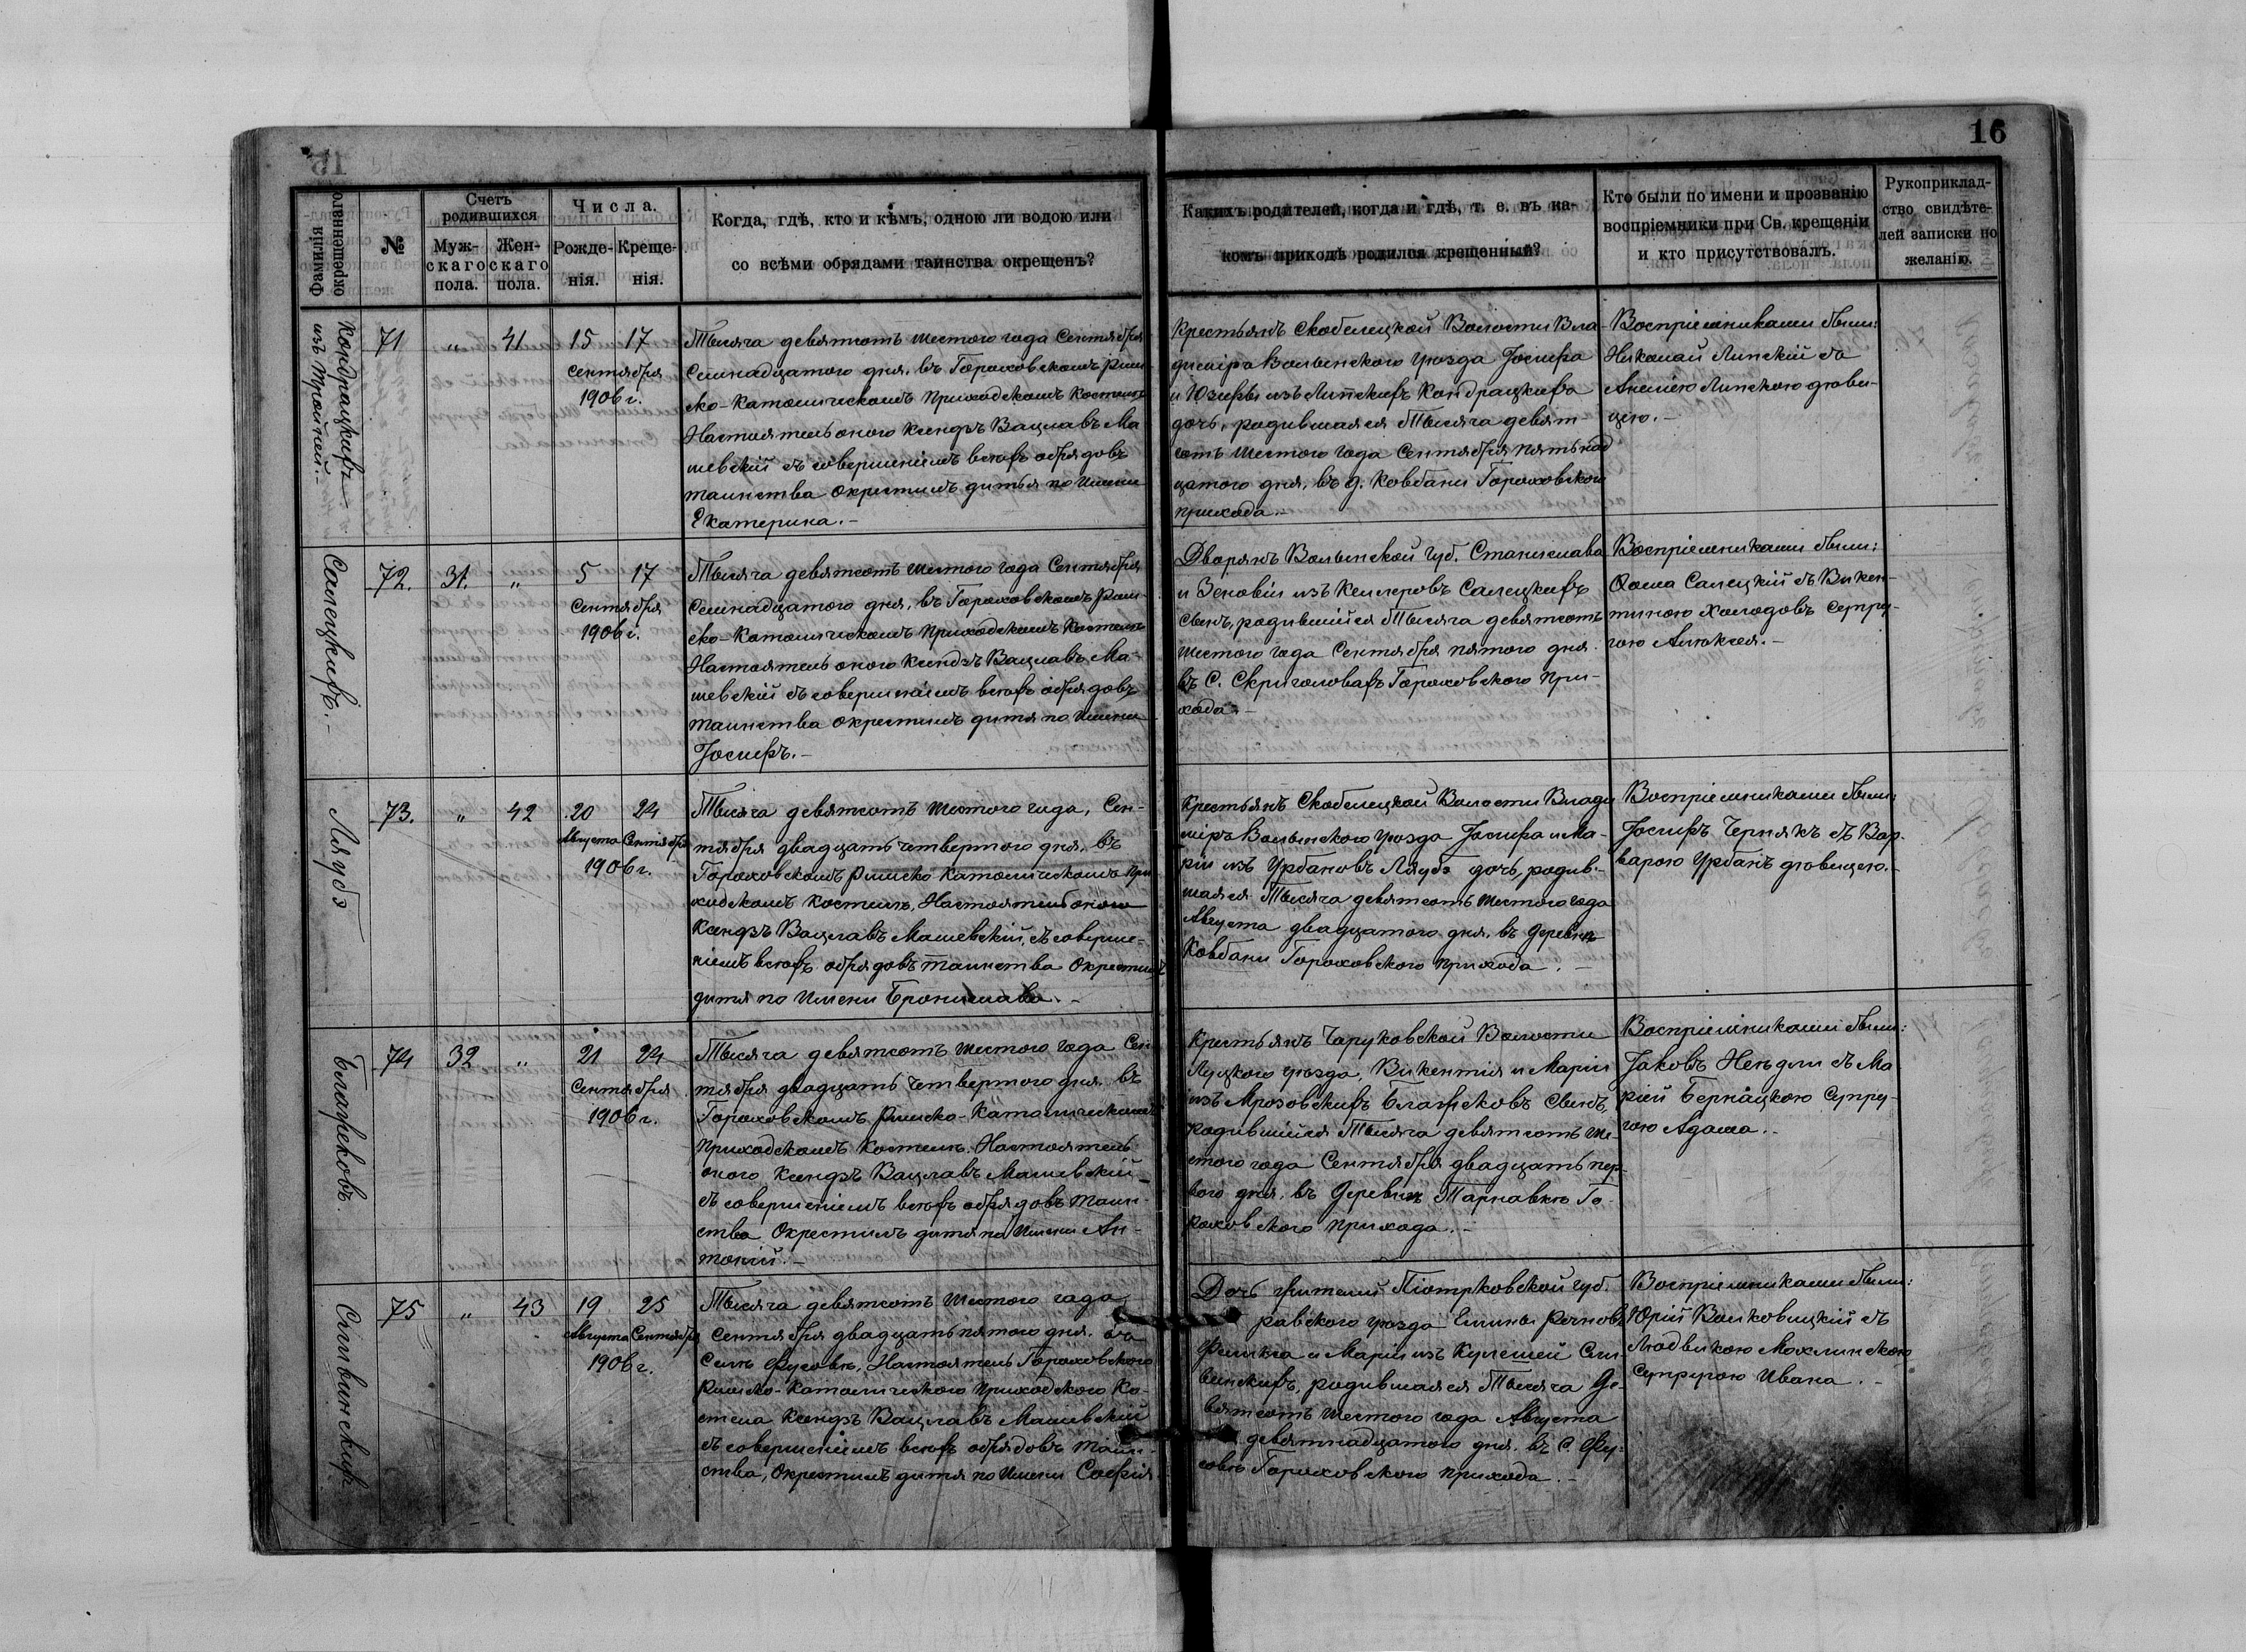 16
Фамилія
окрещеннаго.
№
Счетъ
родившихся
Муж-
скаго
пола.
Жен-
скаго
пола.
Числа.
Рожде-
нія.
Креще-
нія.
Когда, гдѣ, кто и кѣмъ, одною ли водою или
со всѣми обрядами таинства окрещенъ?
Какихъ родителей, когда и гдѣ, т. е. въ ка-
комъ приходѣ родился крещенный?
Кто были по имени и прозванію
воспріемники при Св. крещеніи
и кто присутствовалъ.
Рукоприклад-
ство свидѣте-
лей записки по
желанію.
Кондрацкихъ
изъ
71
"
41
15 17
Сентября
1906 г.
Тысяча девятсотъ шестого года Сентября
Семнадцатого дня, въ Гороховскомъ Рим-
ско-Католическомъ Приходскомъ Костелѣ
Настоятель оного Ксендзъ Вацлавъ Ма
шевскій съ совершеніемъ всѣхъ обрядовъ
таинства окрестилъ дитя по Имени
Екатерина.-
Крестьянъ Скобелецкой Волости Вла-
диміръ Волынского уѣзда Іосифа
и Юзефы изъ Липскихъ Кондрацкихъ
дочь, родившаяся Тысяча девят-
сотъ шестого года Сентября пятьнад
цатого дня, въ д. Ковбани Гороховского
прихода.-
Воспріемниками были:
Николай Липскій съ
Анелією Липскою дѣви-
цею.-
Салецкихъ.-
72.
31.
"
5 17
Сентября
1906 г.
Тысяча девятсотъ шестого года Сентября
Семнадцатого дня, въ Гороховскомъ Рим-
ско-Католическомъ Приходскомъ Костелѣ
Настоятель оного Ксендзъ Вацлавъ Ма-
шевскій съ совершеніемъ всѣхъ обрядовъ
таинства окрестилъ дитя по Имени
Іосифъ.-
Дворянъ Волынской губ. Станислава
и Зеновіи изъ Келлеровъ Салецкихъ
сынъ, родившійся Тысяча девятсотъ
шестого года Сентября пятого дня
въ С. Скриголовахъ Гороховского При-
хода.-
Воспріемниками были:
Ѳома Салецкій съ Викен-
тиною Холодовъ супру-
гою Алексея.-
Ляубэ
73.
"
42
20 24
Августа Сентября
1906 г.
Тысяча девятсотъ шестого года, Сен-
тября двадцать четвертого дня, въ
Гороховскомъ Римско Католическомъ При
ходскомъ Костелѣ, Настоятель оного
Ксендзъ Вацлавъ Машевскій, съ соверше-
ніемъ всѣхъ обрядовъ таинства Окрестилъ
дитя по Имени Бронислава.-
Крестьянъ Скобелецкой Волости Влади
міръ Волынского уѣзда Іосифа и Ма-
ріи изъ Урбановъ Ляубэ дочь, родив-
шаяся Тысяча девятсотъ шестого года
Августа двадцатого дня, въ деревнѣ
Ковбани Гороховского прихода.-
Воспріемниками были:
Іосифъ Чернякъ съ Вар-
варою Урбанъ дѣвицею.-
Блажековъ.
74
32
"
21 24
Сентября
1906 г.
Тысяча девятсотъ шестого года Сен
тября двадцать четвертого дня, въ
Гороховскомъ Римско-Католическомъ
Приходскомъ Костелѣ. Настоятель
оного Ксендзъ Вацлавъ Машевскій
съ совершеніемъ всѣхъ обрядовъ таин-
ства Окрестилъ дитя по Имени Ан-
тоній.-
Крестьянъ Чаруковской Волости
Луцкого уѣзда, Викентія и Маріи
изъ Мрозовскихъ Блажековъ сынъ,
родившійся Тысяча девятсотъ ше-
стого года Сентября двадцать пер-
вого дня, въ деревнѣ Тарнавкѣ Го-
роховского прихода.-
Воспріемниками были:
Іаковъ съ Ма
ріей Бернацкою супру-
гою Адама.-
Сливинскихъ
75
"
43
19 25
Августа Сентября
1906 г.
Тысяча девятсотъ шестого года
Сентября двадцать пятого дня, въ
Селѣ Фусовѣ, Настоятель Гороховского
Римско-Католического Приходского Ко-
стела Ксендзъ Вацлавъ Машевскій
съ совершеніемъ всѣхъ обрядовъ таин-
ства, Окрестилъ дитя по Имени Софія
Дочь жителей Піотрковской губ.
равского уѣзда
Феликса и Маріи изъ Кулешей Сли-
винскихъ, родившаяся Тысяча де-
вятсотъ шестого года Августа
девятнадцатого дня, въ С. Фу-
совѣ Гороховского прихода.-
Воспріемниками были:
Юрій Волковицкій съ
Людвикою Мохлинскою
супругою Ивана.-